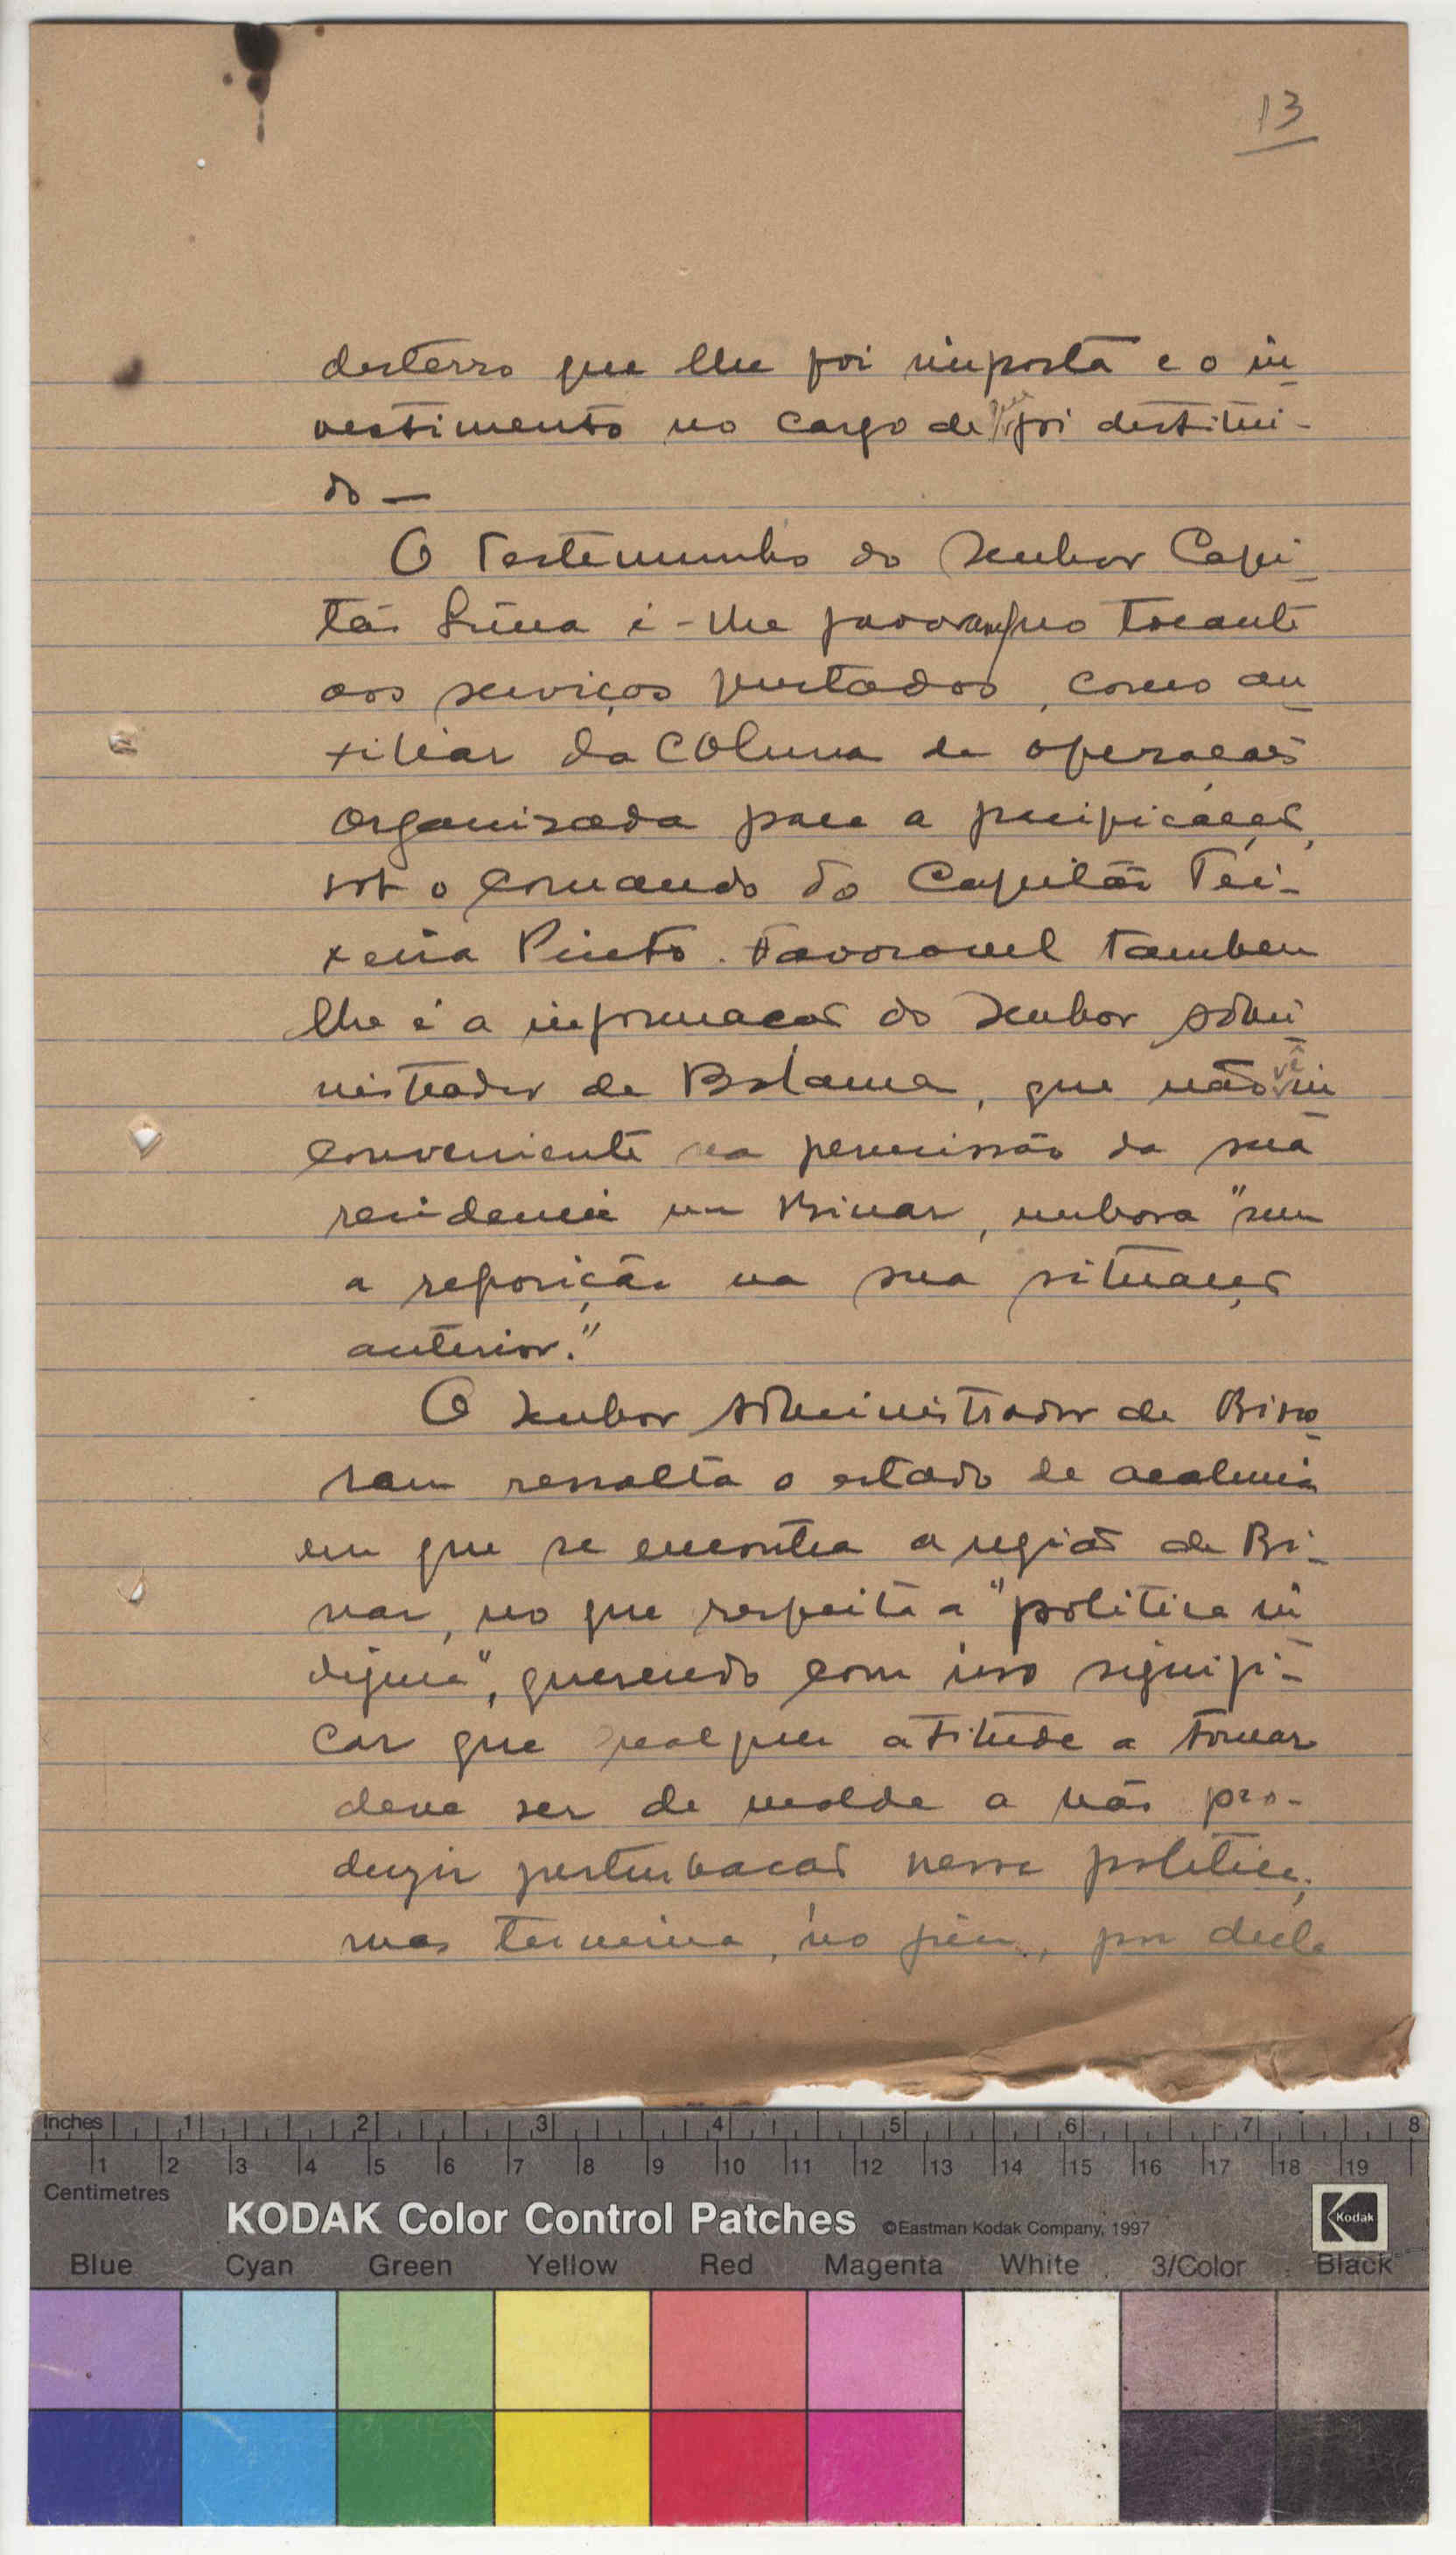 13
desterro que lhe foi imposta e o in
vestimento no cargo de que foi destitui-
do —
O testemunho do Senhor Capi
tão Lima é-lhe favoravel no tocante
aos serviços prestados, como au
xiliar da Coluna de operações
organisada para a pacificação,
sob o comando do Capitão Tei-
xeira Pinto. Favoravel tambem
lhe é a informação do Senhor Admi
nistrador de Bolama, que não vê in
conveniente na permissão da sua
residencia em Binar, embora "sem
a reposição na sua situação
anterior."
O Senhor Administrador de Bisso
ram ressalta o estado de acalmia
em que se encontra a região de Bi-
nar, no que respeita a "politica in
digena", querendo com isso signifi-
car que qualquer atitude a tomar
deve ser de molde a não pro-
duzir perturbação nessa politica;
mas termina, no fim, por decla
Inches 1 2 3 4 5 6 7 8
1 2 3 4 5 6 7 8 9 10 11 12 13 14 15 16 17 18 19
Centimetres
KODAK Color Control Patches ©Eastman Kodak Company, 1997 Kodak
Blue Cyan Green Yellow Red Magenta White 3/Color Black